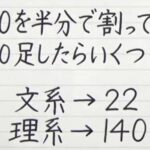 0を半分で割って
0足したらいくつ
文系→22
理系→140